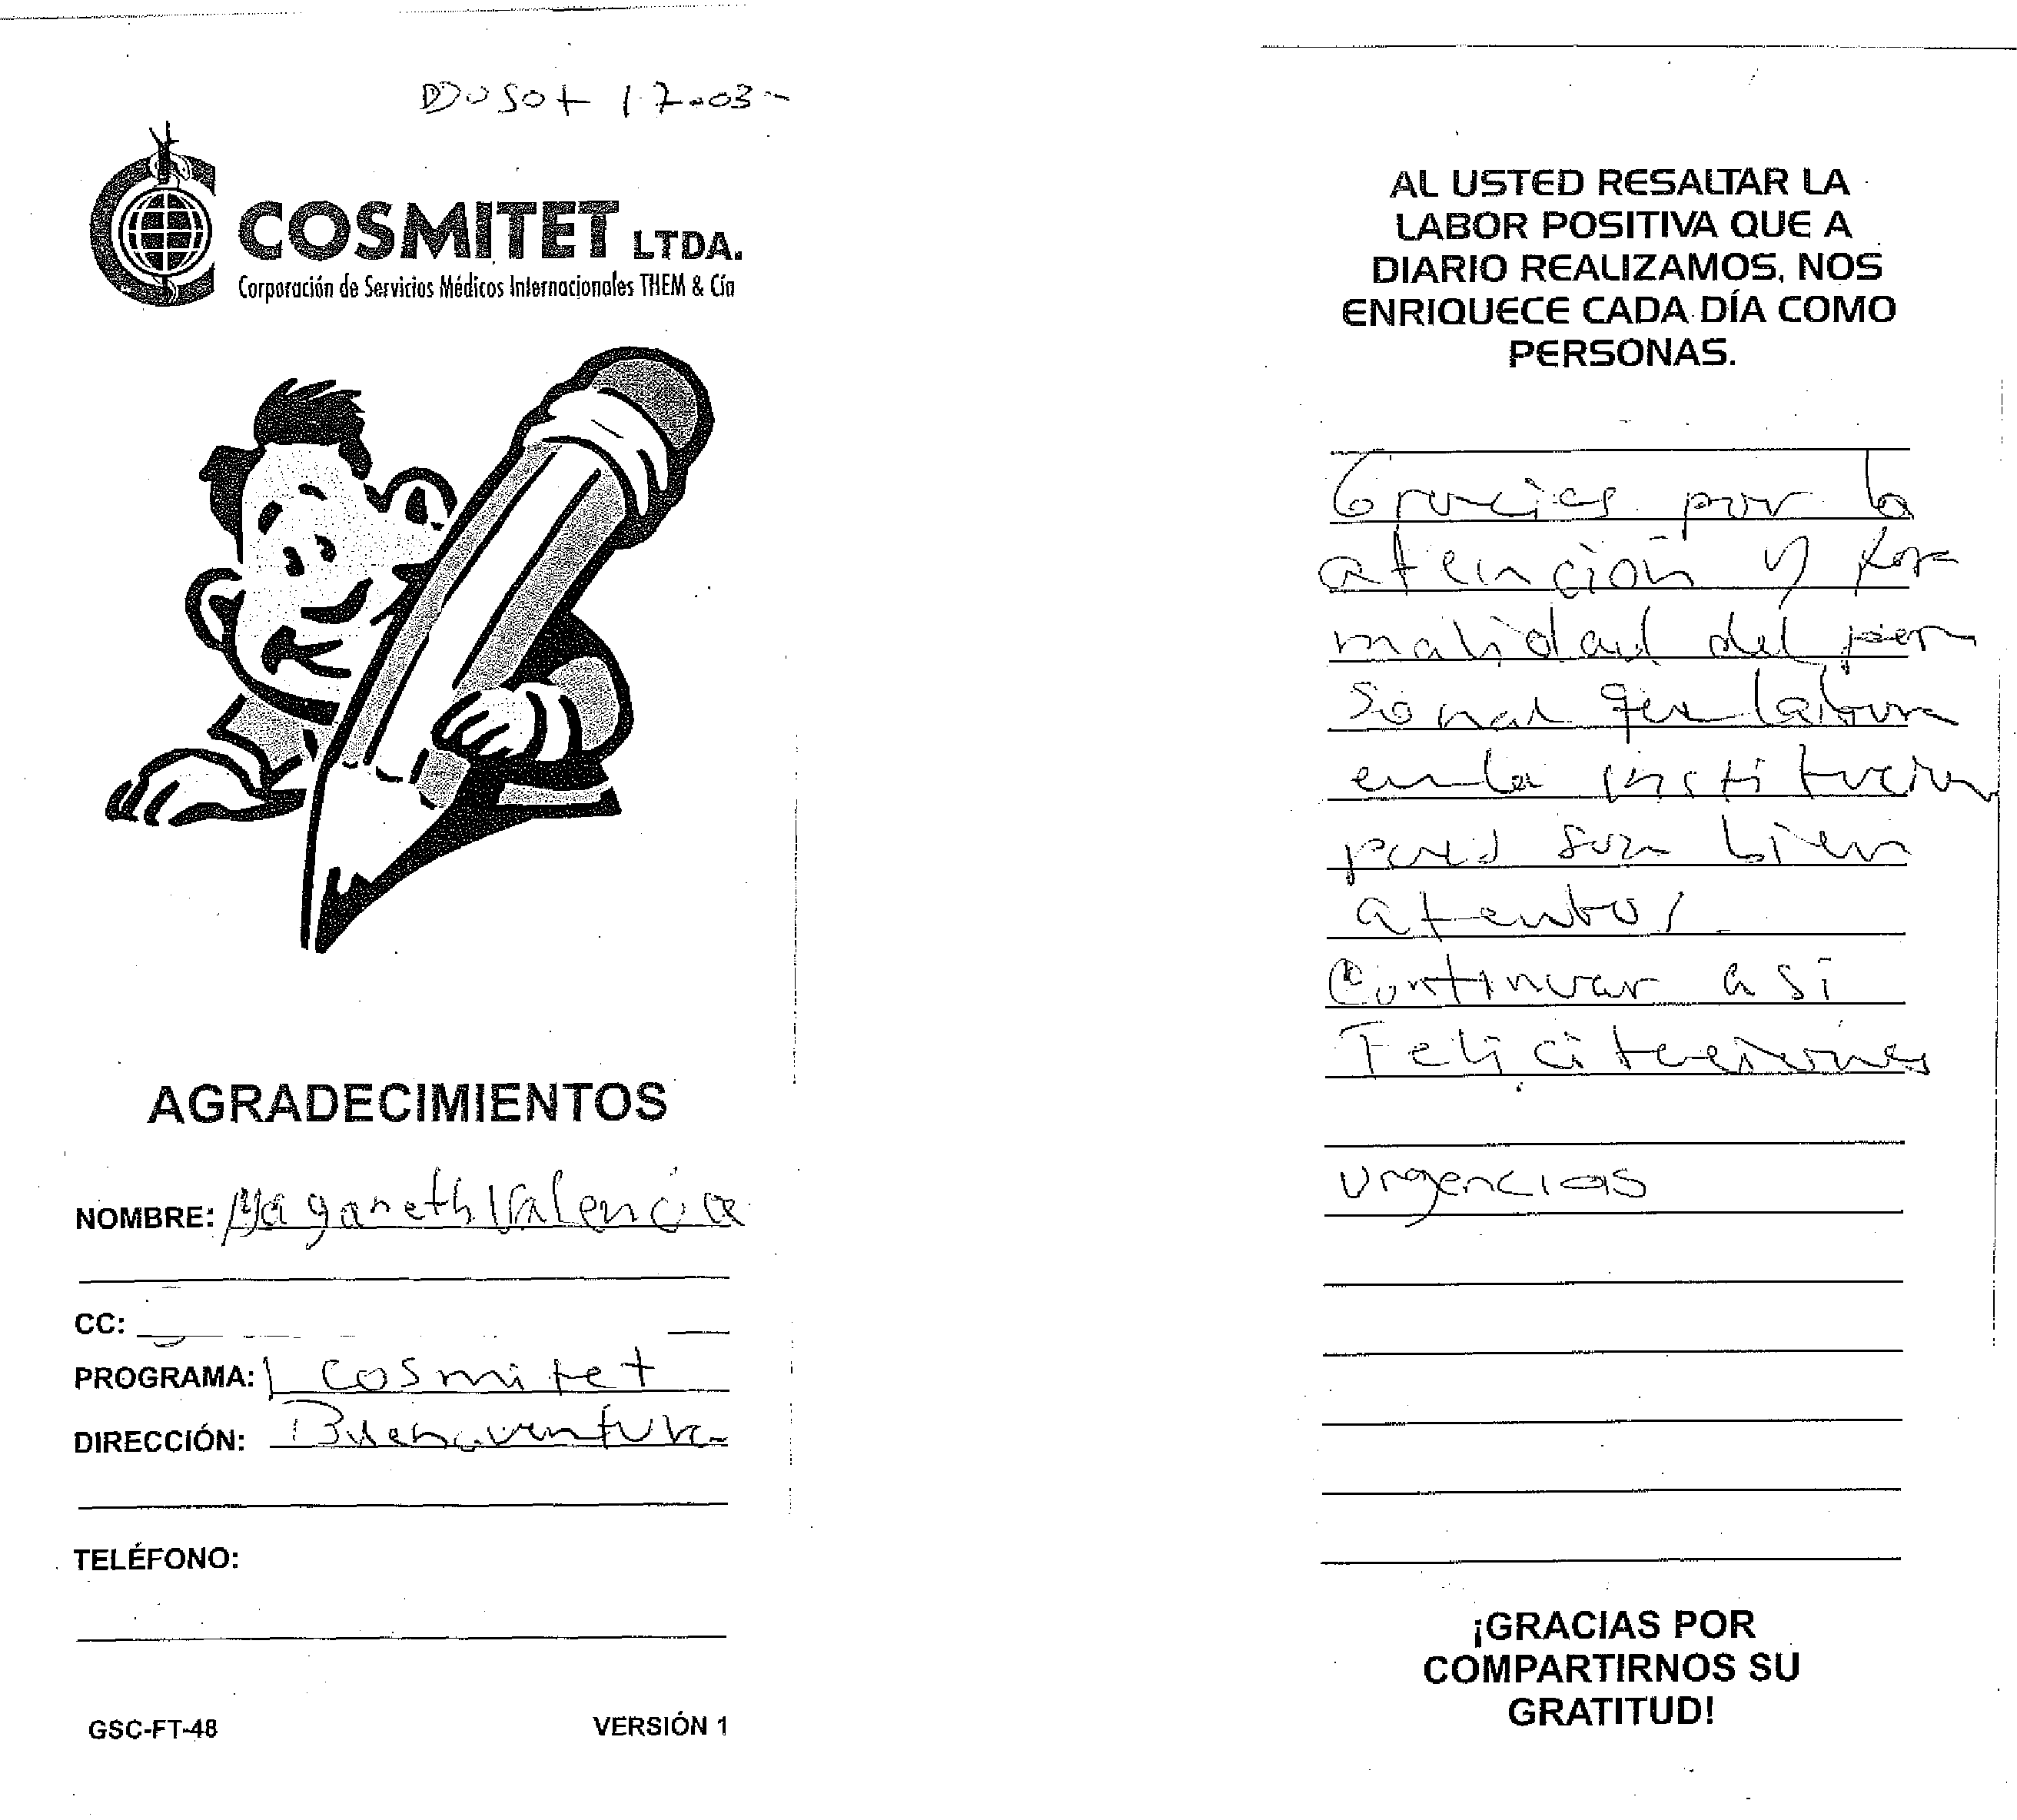 COSMITET LTDA.
Corporación de Servicios Médicos Internacionales THEM & Cía
AGRADECIMIENTOS
NOMBRE: Maganeth Valencia
CC:
PROGRAMA: Cosmitet
DIRECCIÓN: Buenaventura
TELÉFONO:
GSC-FT-48 VERSIÓN 1
AL USTED RESALTAR LA
LABOR POSITIVA QUE A
DIARIO REALIZAMOS, NOS
ENRIQUECE CADA DÍA COMO
PERSONAS.
Gracias por la
atención y for
malidad del per
sonal que labora
en la institucion
pues son bien
atentos.
Continuar asi
Felicitaciones
Urgencias
¡GRACIAS POR
COMPARTIRNOS SU
GRATITUD!